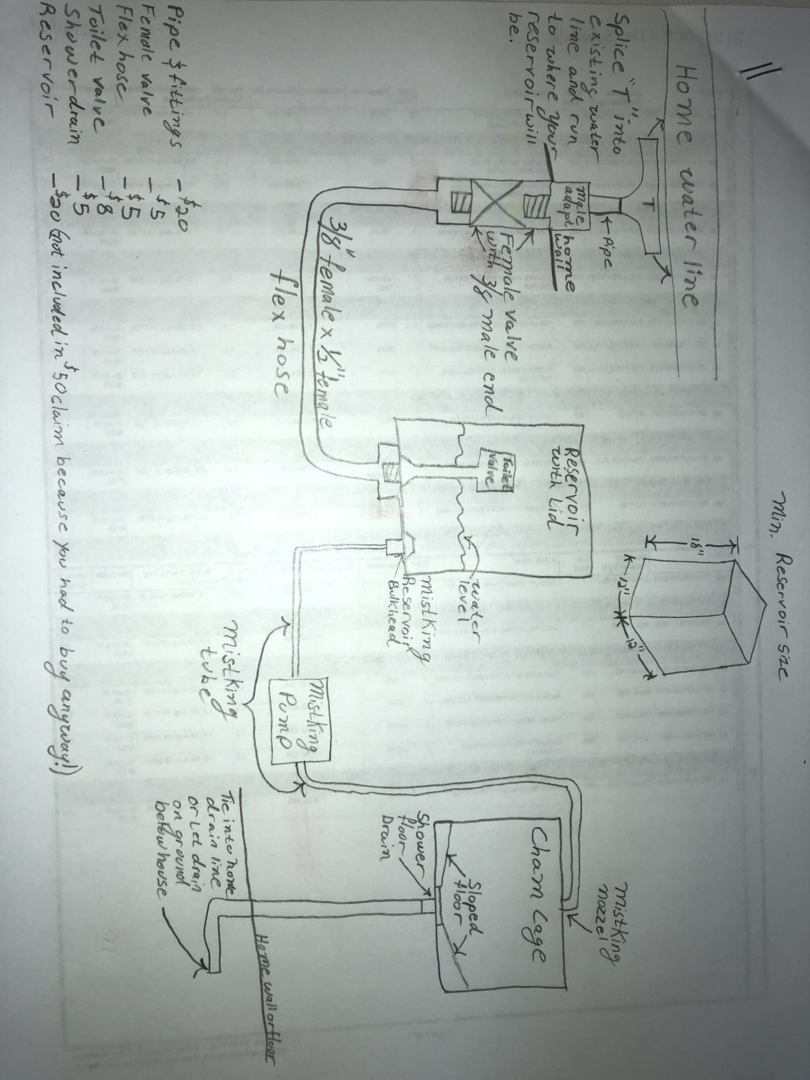 11
Home water line
Splice "T" into
existing water
line and run
to where your
reservoir will
be.
T
Pipe
male
adapt
home
wall
Female valve
with 3/8 male end
3/8" female x 1/2" female
flex hose
Reservoir
with Lid
Toilet
Valve
water
level
mistking
Reservoir
Bulkhead
Min. Reservoir size
18"
12"
12"
Mistking
tube
Mistking
Pump
Mistking
nozzel
Cham Cage
Sloped
floor
Shower
floor
Drain
Tie into home
drain line
or Let drain
on ground
below house
Home wall or floor
Pipe & fittings - $20
Female valve - $5
Flex hose - $5
Toilet valve - $8
Shower drain - $5
Reservoir - $20 (not included in $50 claim because you had to buy anyway!)